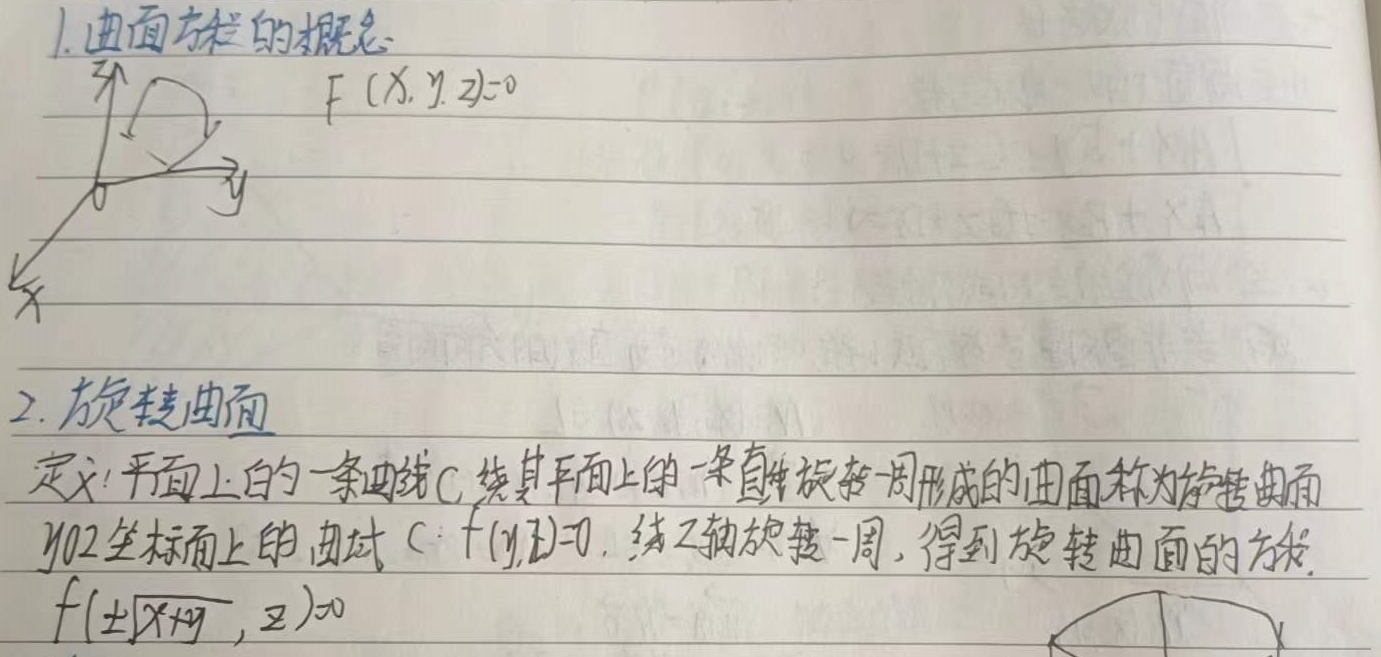 1.曲面方程的概念.
z
F(x,y,z)=0
y
0
x
2.旋转曲面
定义:平面上的一条曲线C,绕其平面上的一条直线旋转一周形成的曲面称为旋转曲面
yoz坐标面上的曲线 C:f(y,z)=0,绕z轴旋转一周,得到旋转曲面的方程.
f(±√x+y,z)=0